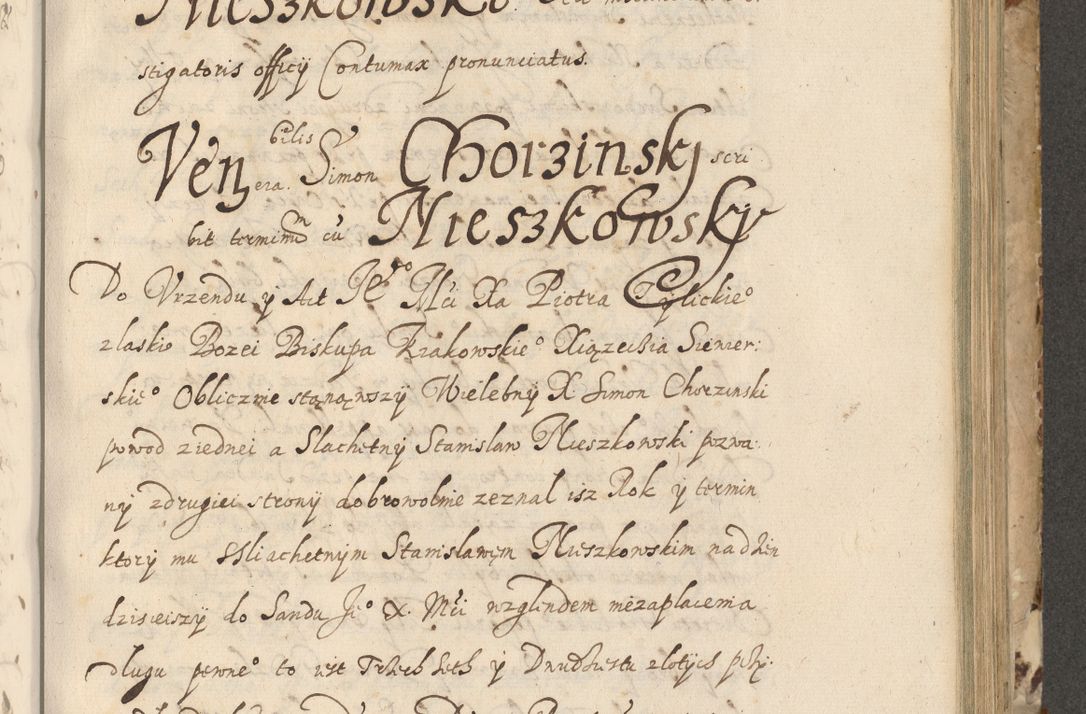 Nieszkowsko
stigatoris officij Contumax pronunciatus.
Venera bilis Simon Chorzinskj scri
bit terminũ cũ Nieszkowskỹ
Do Vrzendu y Act Je⁰ Mći Xa Piotra Tÿlickie⁰
z laskie Bozei Biskupa Krakowskie⁰ Xiązecisia Siewier:
skie⁰ Oblicznie stąnąwszÿ Wielebnÿ X. Simon Chorzinski
powod z iednei a Slachetnÿ Stanislaw Nieszkowski pozwa.
nÿ z drugiei stronÿ dobrowolnie zeznal isz Rok ÿ termin
ktorÿ mu Sliachetnÿm Stanislawem Nieszkowskim na dzien
dzisieiszÿ do Sandu Je⁰ X. Mći wzglendem niezaplacenia
dlugu pewne⁰ to iest Trzech seth ÿ Dwudziestu zlotÿch